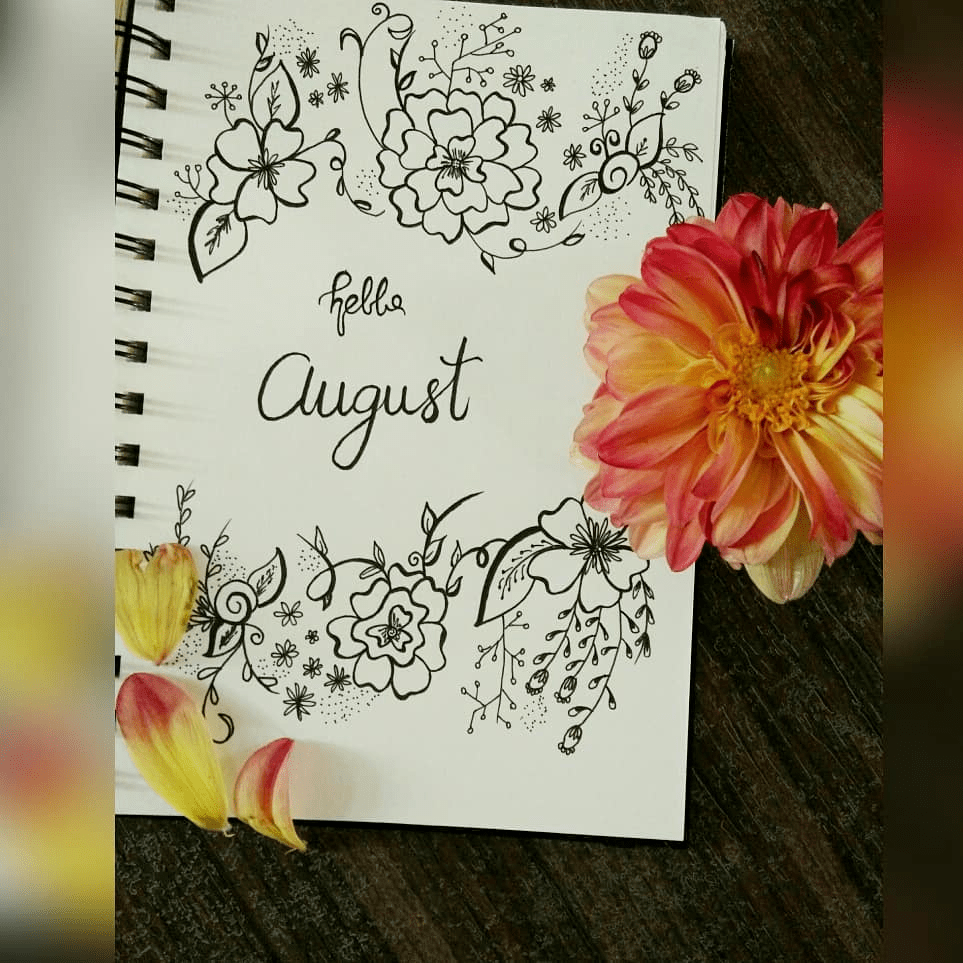 hello
August